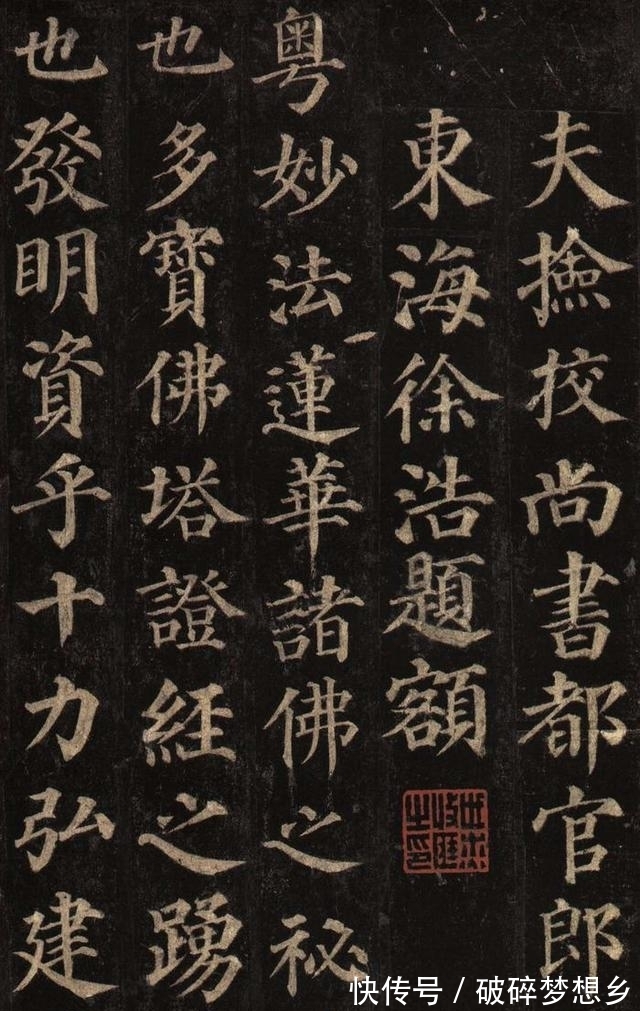 夫撿挍尚書都官郎
東海徐浩題額
粵妙法蓮華諸佛之秘
也多寶佛塔證經之踴
也發明資乎十力弘建
快传号 / 破碎梦想乡